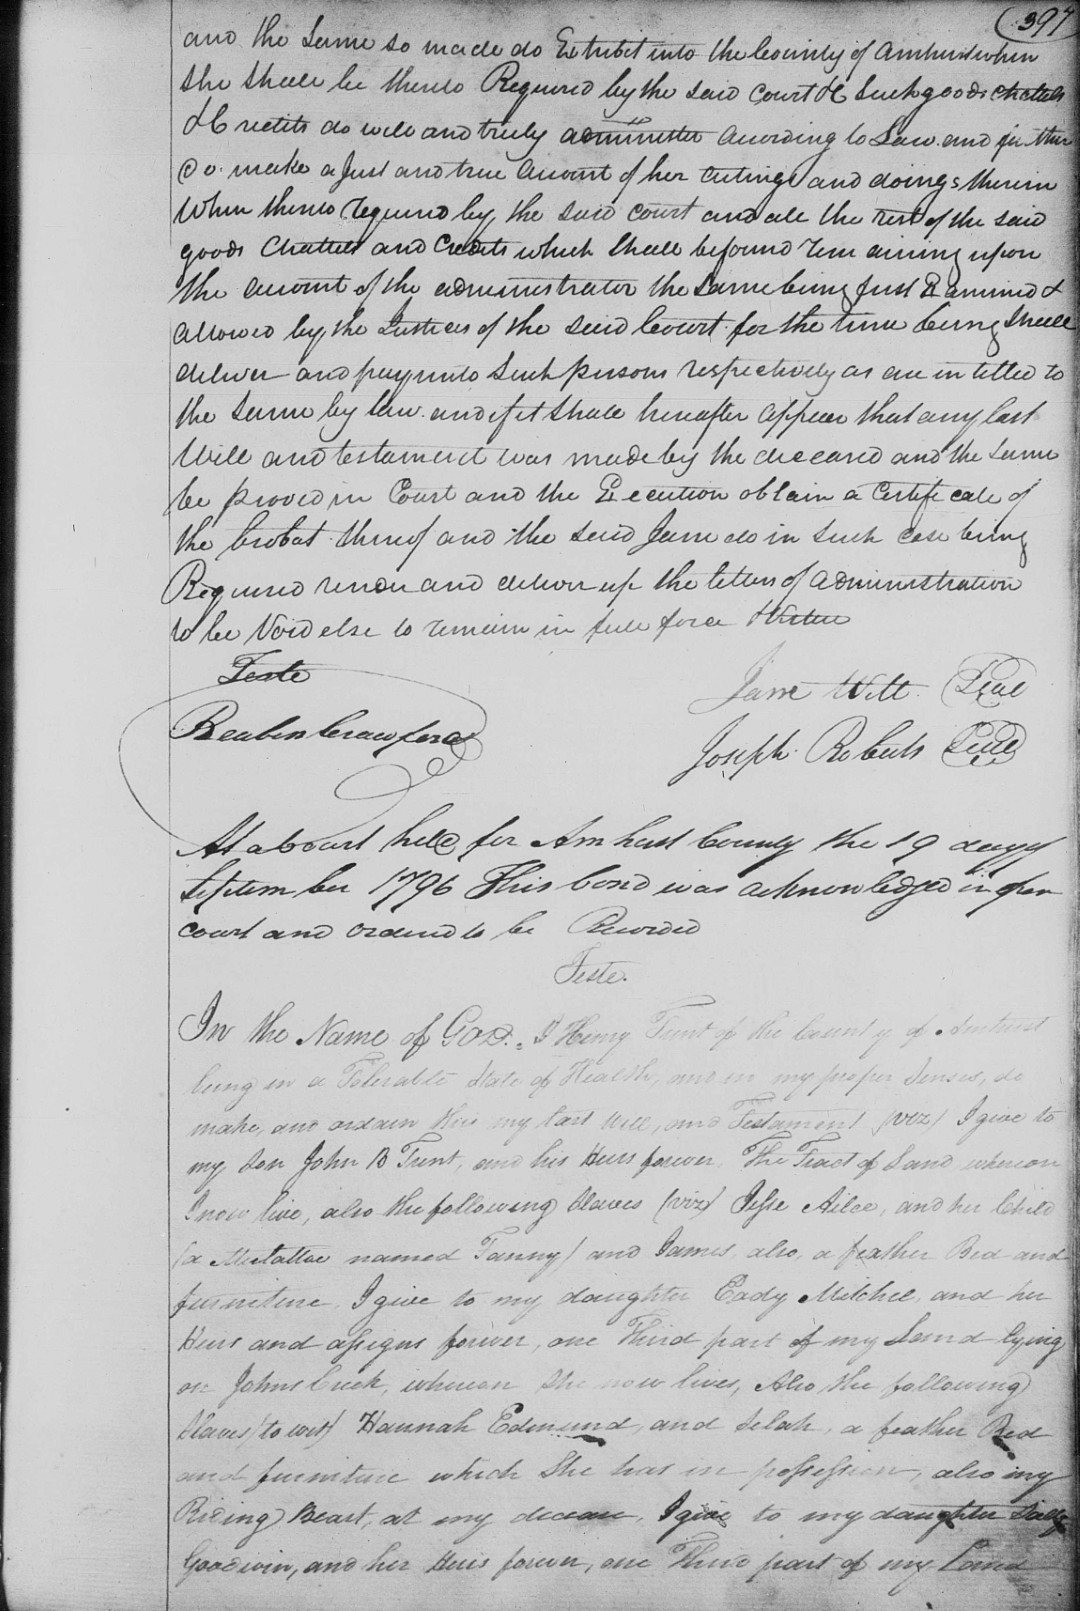 397
and the Same so made do Exhibit into the County of Amherst when
She Shall be thereto Required by the said Court & Such goods chattels
& Credits do well and truly administer according to Law and further
do make a Just and true account of her actings and doings therein
When thereto required by the said court and all the rest of the said
goods Chattels and Credits which Shall be found remaining upon
the account of the administrator the Same being Just Examined &
allowed by the Justices of the said Court for the time being Shall
deliver and pay unto Such persons respectively as are intitled to
the Same by law and if it Shall hereafter appear that any last
Will and testament was made by the deceased and the Same
be proved in Court and the Execution obtain a Certificate of
the Probat thereof and the said Jane do in such case being
Required render and deliver up the letters of administration
to be Void else to remain in full force & Virtue
Teste
Jane Witt Seal
Reuben Crawford
Joseph Roberts Seal
At a Court held for Amherst County the 19 day of
September 1796 This bond was acknowledged in open
court and ordered to be Recorded
Teste.
In the Name of GOD. I Henry Trent of the County of Amherst
being in a Tolerable State of Health, and in my proper Senses, do
make, and ordain this my last Will, and Testament (viz) I give to
my Son John B Trent, and his Heirs forever, The Tract of Land whereon
I now live, also the following Slaves (viz) Jesse Ailce, and her Child
(a Mulattoe named Tanny) and James, also, a feather Bed and
furniture. I give to my daughter Eady Mitchel, and her
Heirs and assigns forever, one Third part of my Land lying
on Johns Creek, whereon She now lives, Also the following
Slaves (to wit) Hannah Edmund, and Selah, a feather Bed
and furniture which She has in possession, also my
Riding Beast, at my decease. I give to my daughter Sally
Goodwin, and her Heirs forever, one Third part of my Land